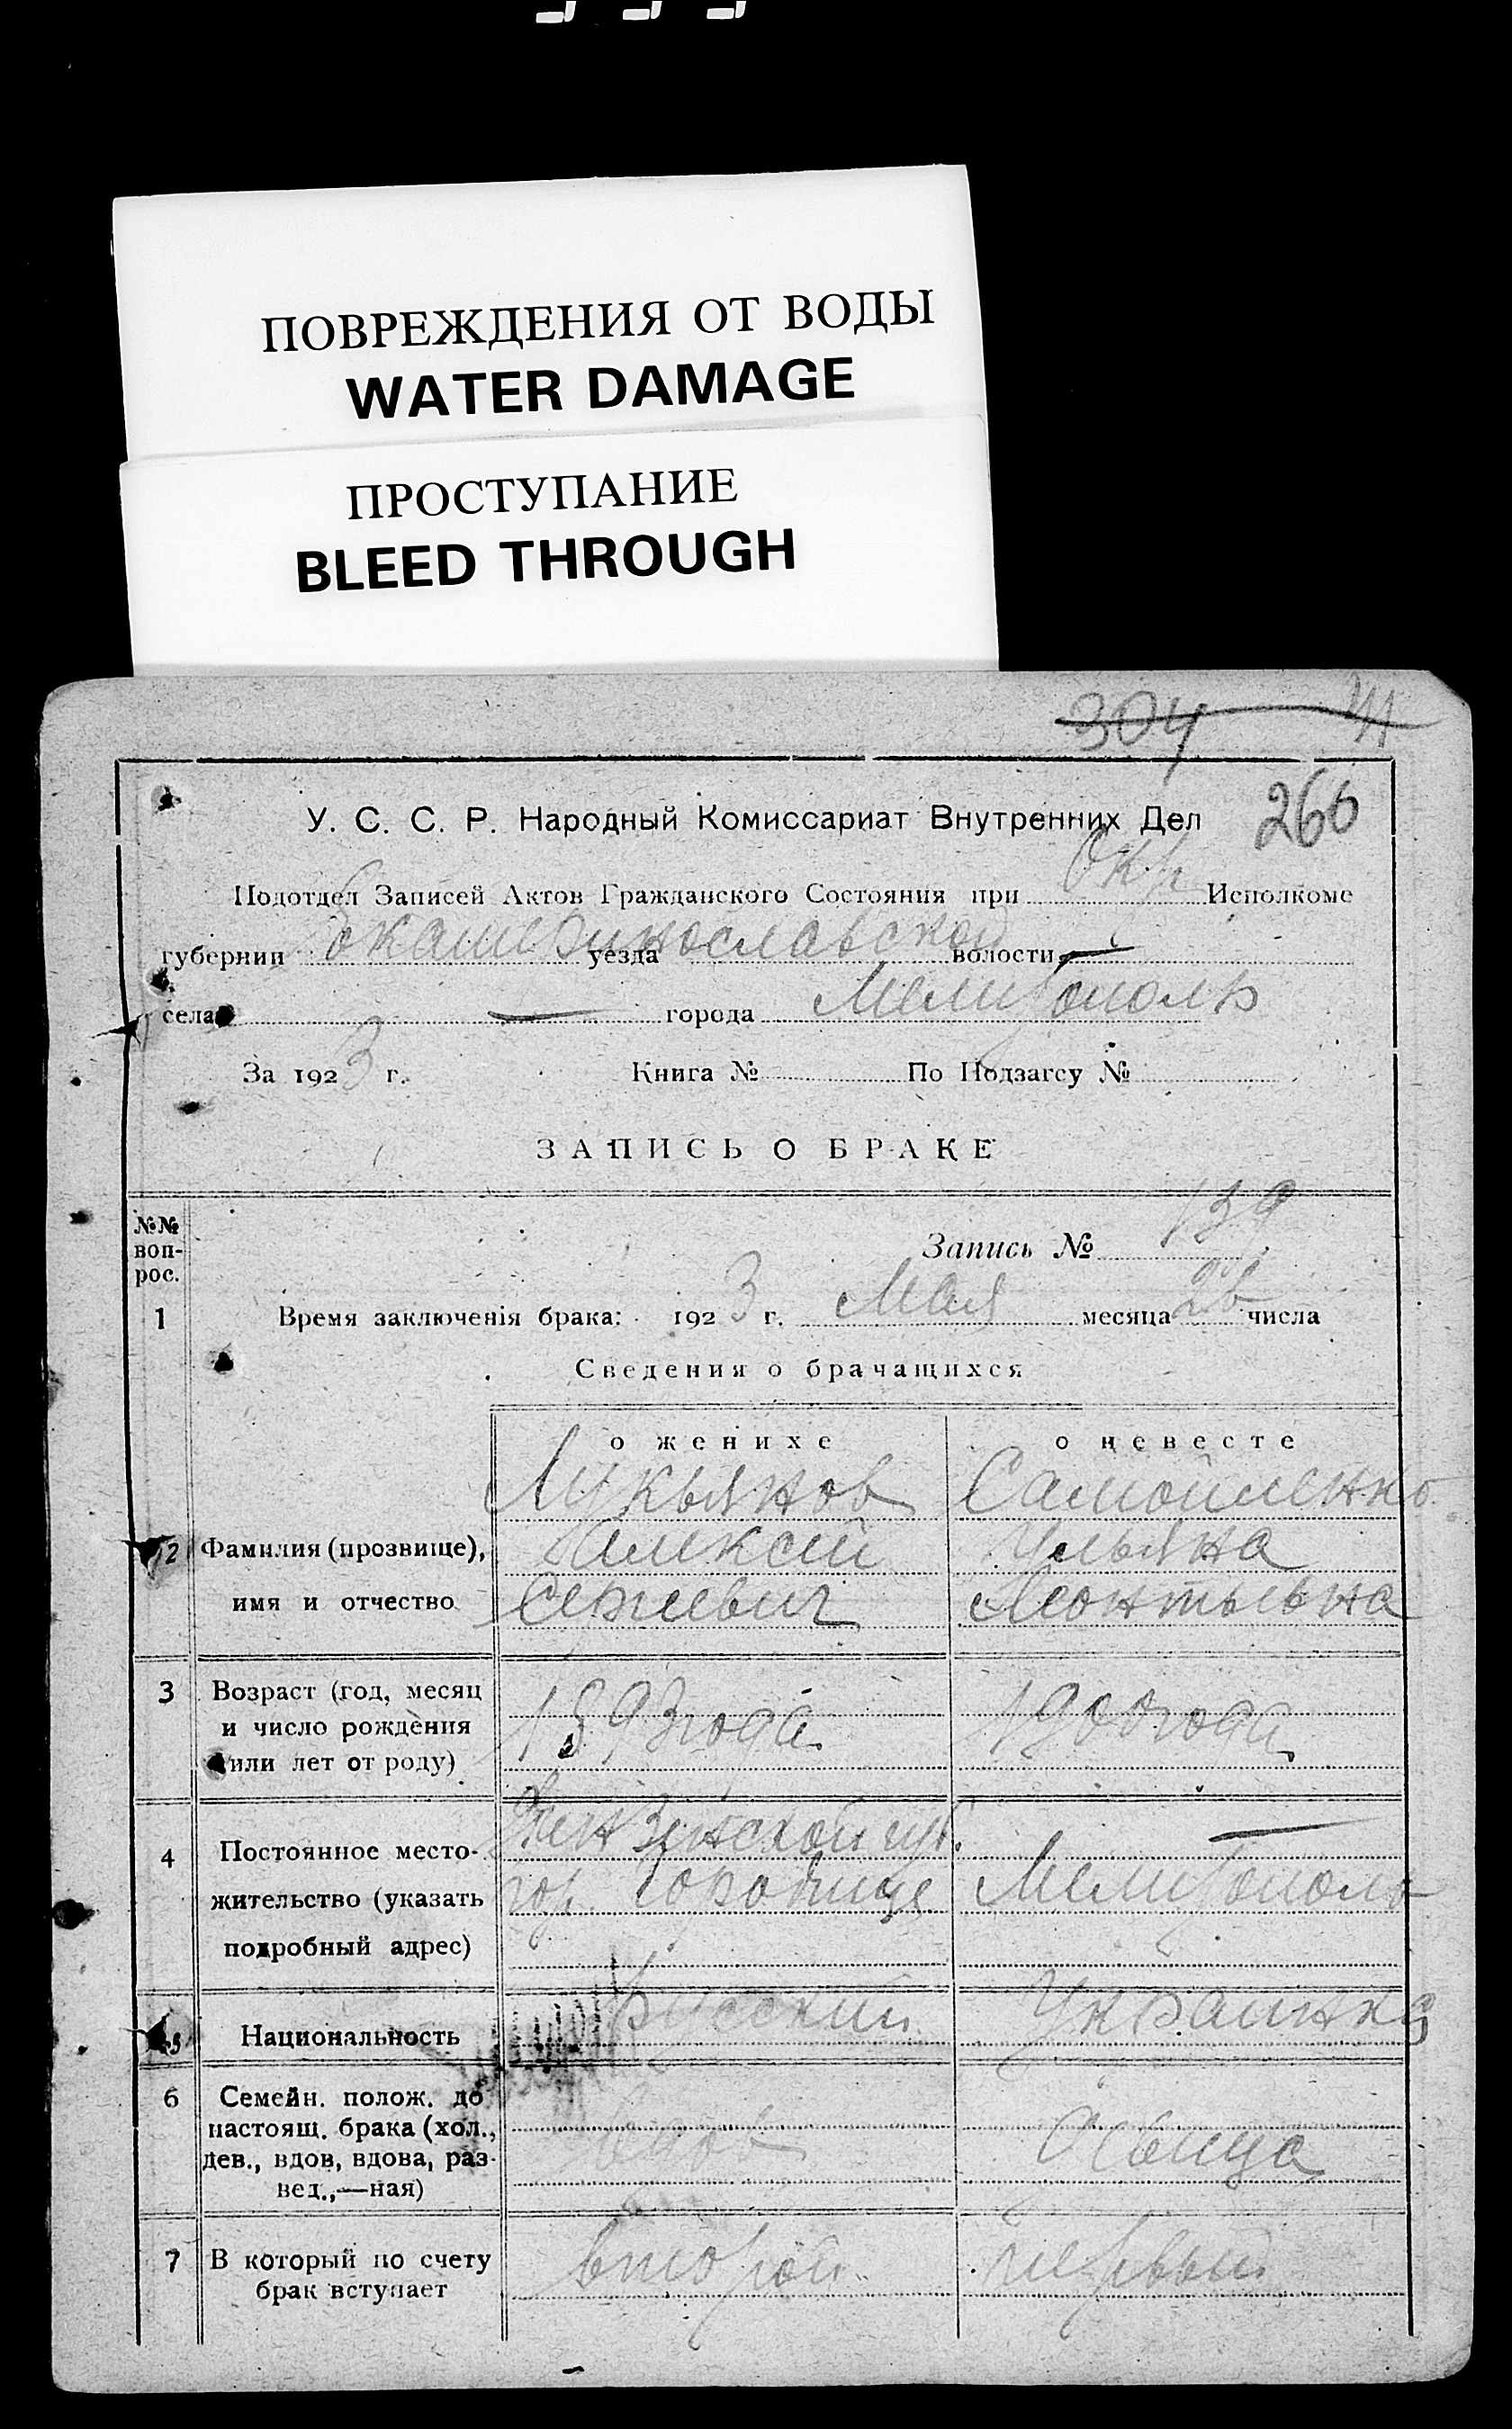 ПОВРЕЖДЕНИЯ ОТ ВОДЫ
WATER DAMAGE
ПРОСТУПАНИЕ
BLEED THROUGH
304
266
У. С. С. Р. Народный Комиссариат Внутренних Дел
Подотдел Записей Актов Гражданского Состояния при Окр Исполкоме
губернии Екатеринославской уезда волости —
села — города Мелитополь
За 1923 г. Книга № По Подзагсу №
ЗАПИСЬ О БРАКЕ
№№ воп-рос.
Запись № 139
1 Время заключенія брака: 1923 г. Мая месяца 26 числа
Сведения о брачащихся
о женихе о невесте
Лукьянов Самойленко
2 Фамилия (прозвище), Алексей Ульяна
имя и отчество Сергеевич Леонтьевна
3 Возраст (год, месяц
и число рождения 1893 года 1900 года
или лет от роду)
Пензенской губ. —
4 Постоянное место-
жительство (указать гор. Городище Мелитополь
подробный адрес)
5 Национальность русский Украинка
6 Семейн. полож. до
настоящ. брака (хол.,
дев., вдов, вдова, раз- вдов девица
вед.,—ная)
7 В который по счету второй первый
брак вступает